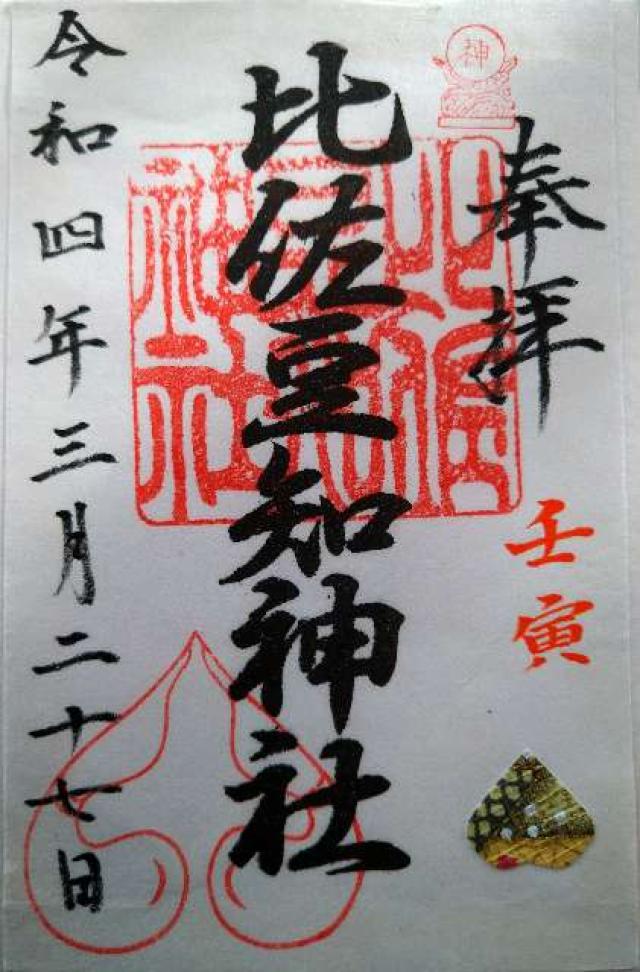 神
奉拝
壬寅
比佐豆知神社
令和四年三月二十七日